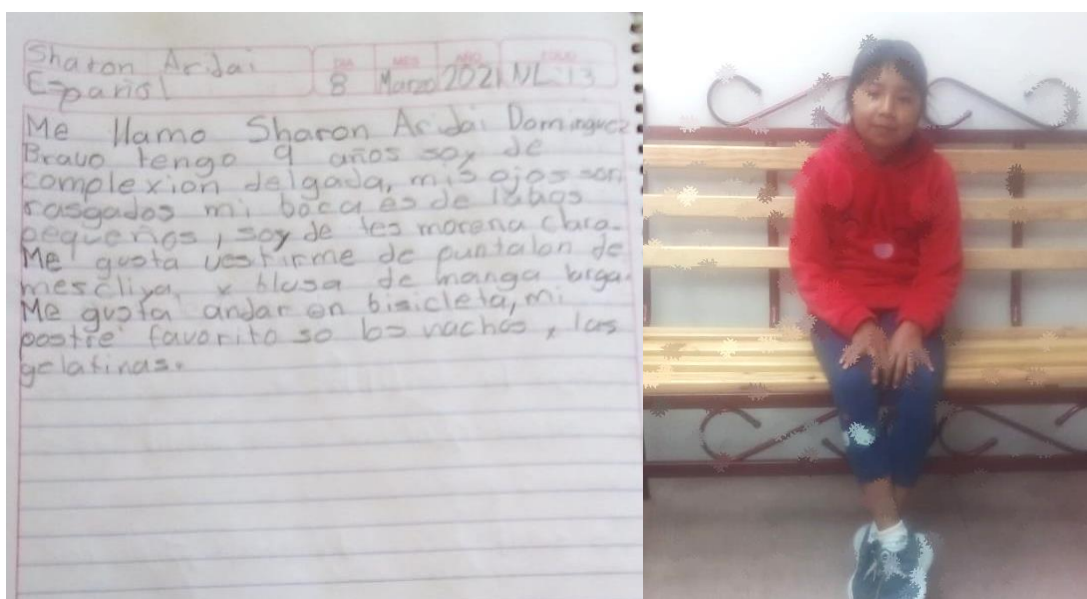 Sharon Aridai
DIA MES AÑO FOLIO
Español 8 Marzo 2021 NL:13
Me llamo Sharon Aridai Dominguez
Bravo tengo 9 años soy de
complexion delgada, mis ojos son
rasgados mi boca es de labios
pequeños, soy de tes morena clara.
Me gusta vestirme de puntalon de
mescliya y blusa de manga larga.
Me gusta andar en bisicleta, mi
postre favorito so los nachos, las
gelatinas.